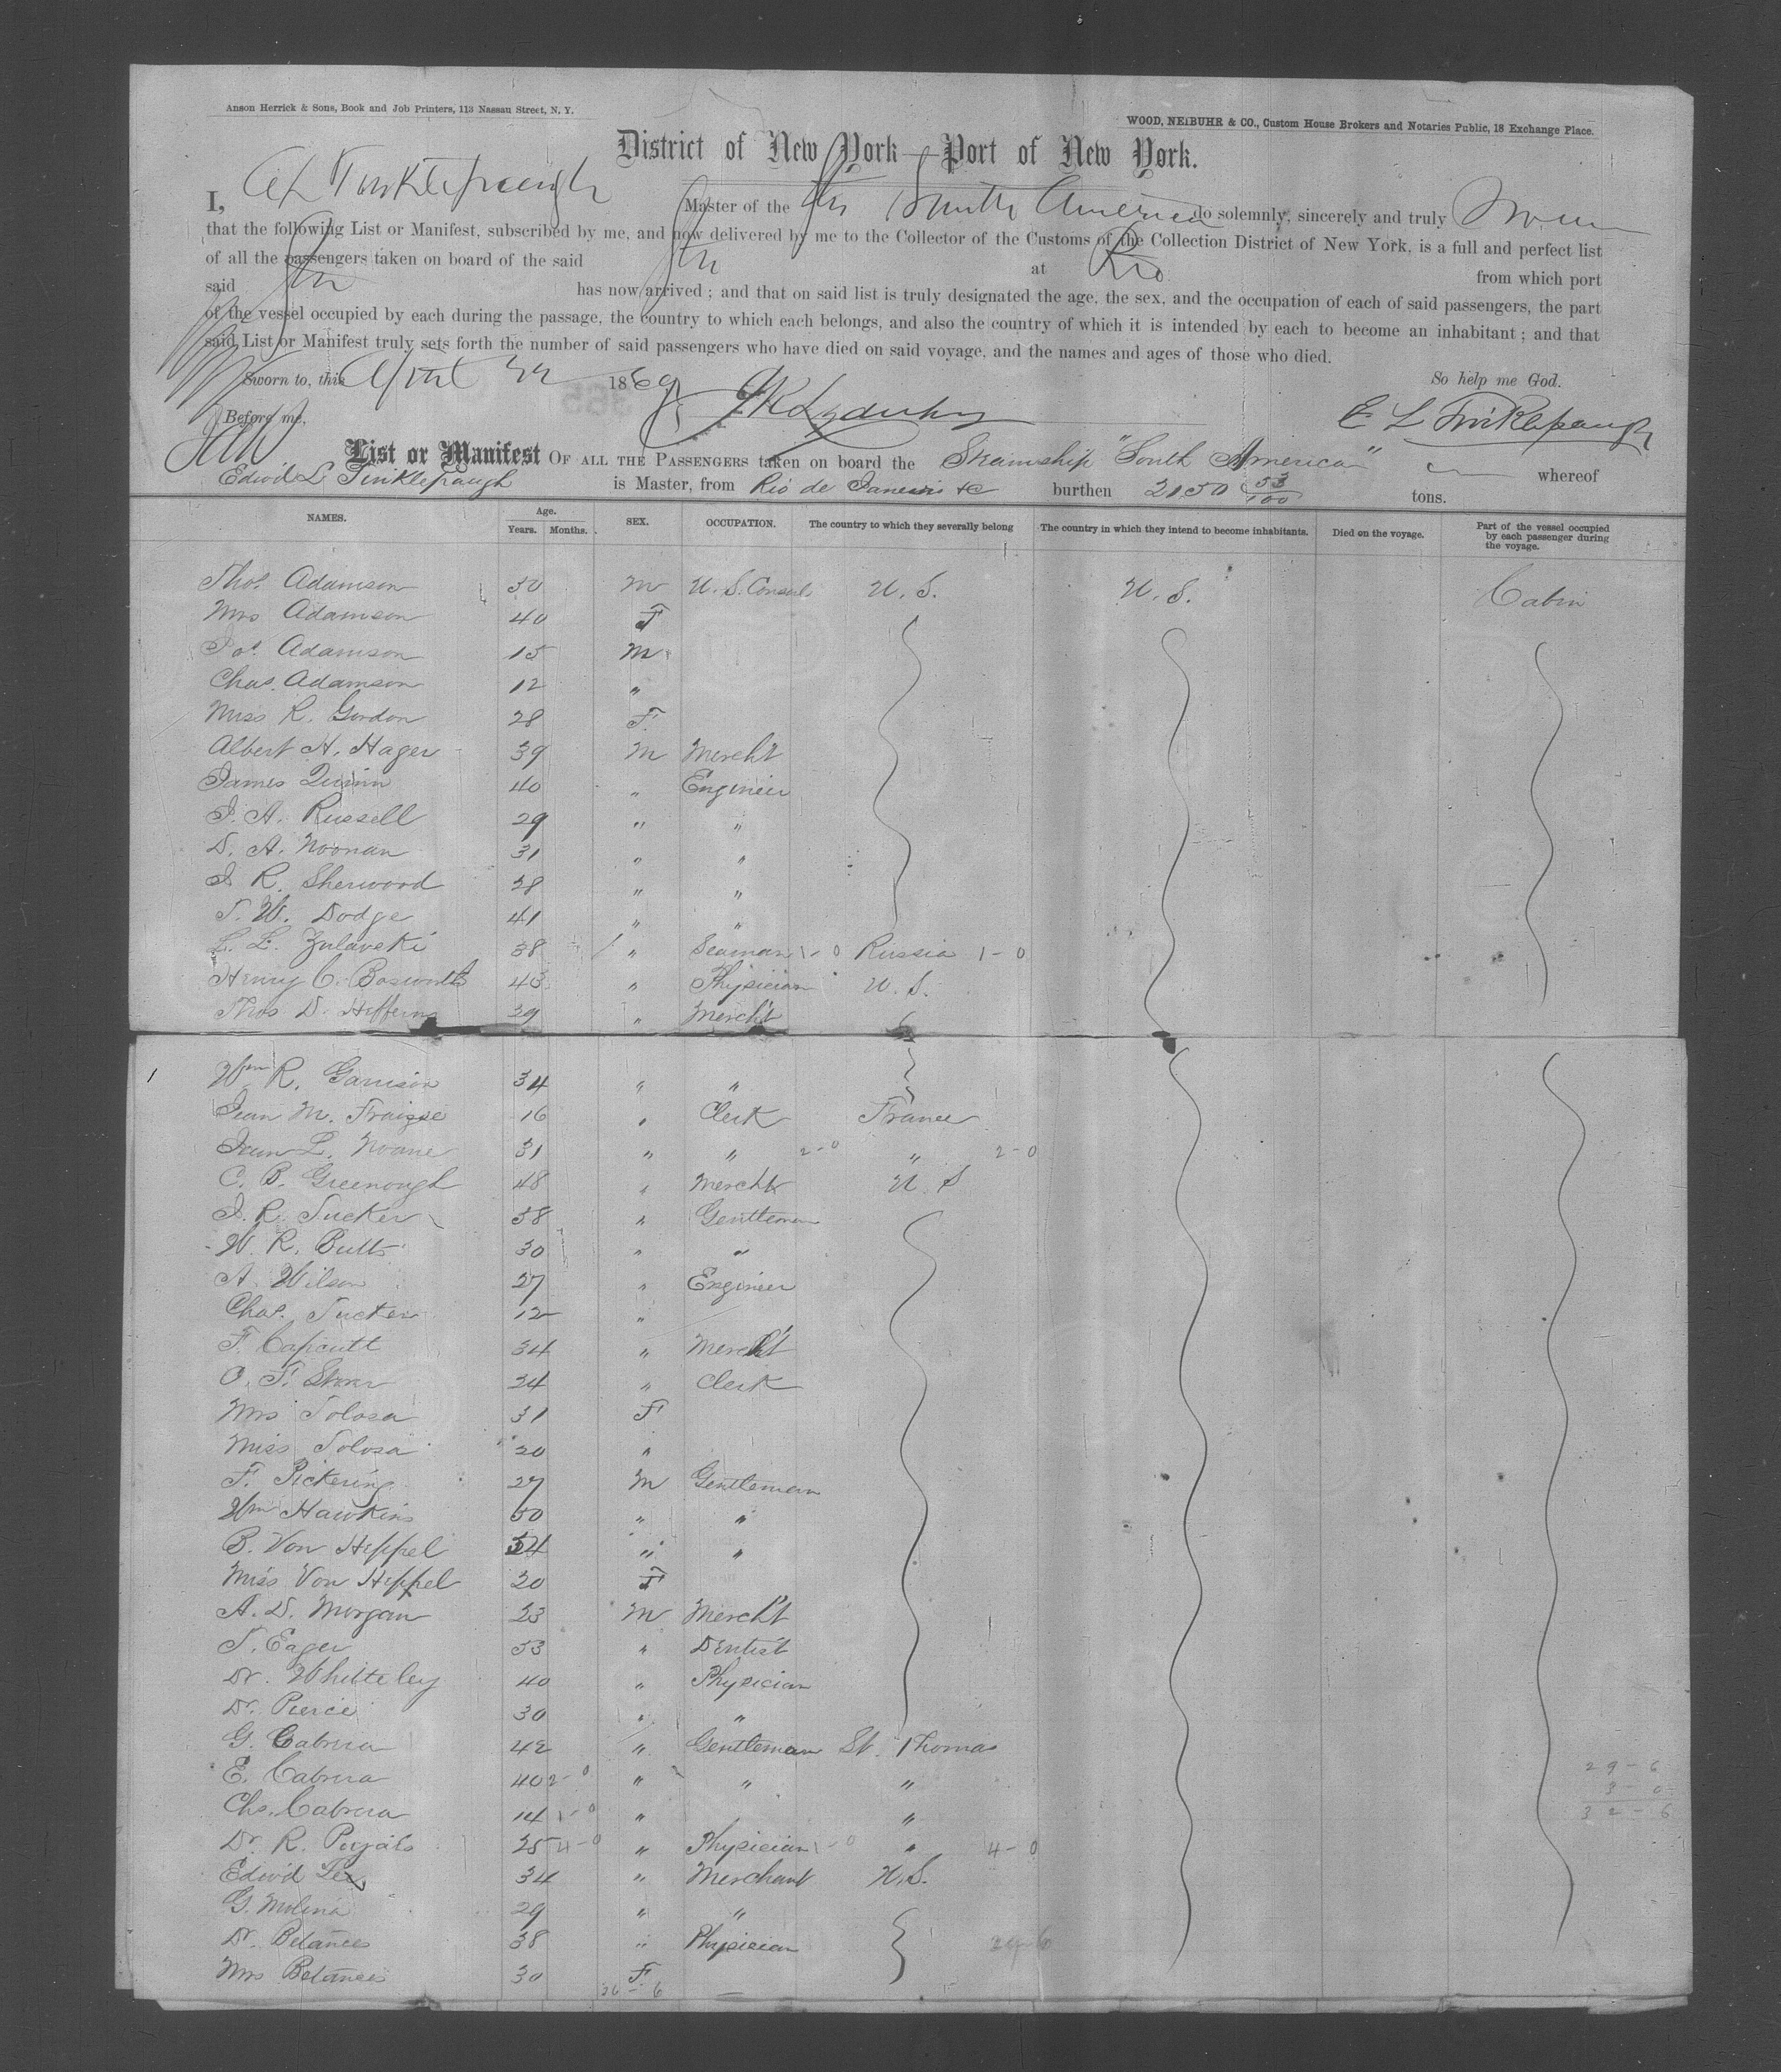 Anson Herrick & Sons, Book and Job Printers, 113 Nassau Street, N. Y.
WOOD, NEIBUHR & CO., Custom House Brokers and Notaries Public, 18 Exchange Place.
District of New York—Port of New York.
I, E L Tinklepaugh Master of the Str South America do solemnly, sincerely and truly Swear
that the following List or Manifest, subscribed by me, and now delivered by me to the Collector of the Customs of the Collection District of New York, is a full and perfect list
of all the passengers taken on board of the said Str at Rio from which port
said Str has now arrived; and that on said list is truly designated the age, the sex, and the occupation of each of said passengers, the part
of the vessel occupied by each during the passage, the country to which each belongs, and also the country of which it is intended by each to become an inhabitant; and that
said List or Manifest truly sets forth the number of said passengers who have died on said voyage, and the names and ages of those who died.
Sworn to, this April 1869 So help me God.
Before me, E L Tinklepaugh
List or Manifest OF ALL THE PASSENGERS taken on board the Steamship "South America" whereof
Edwd L Tinklepaugh is Master, from Rio de Janeiro &c burthen 2150 53/100 tons.
NAMES. Age. Years. Months. SEX. OCCUPATION. The country to which they severally belong The country in which they intend to become inhabitants. Died on the voyage. Part of the vessel occupied by each passenger during the voyage.
Thos. Adamson 50 M U. S. Consul U. S. U. S. Cabin
Mrs Adamson 40 F
Jos. Adamson 15 M
Chas. Adamson 12 "
Miss R. Gordon 28 F
Albert H. Hager 39 M Mercht
James Quinn 40 " Engineer
J. A. Russell 29 " "
D. A. Noonan 31 " "
J R. Sherwood 28 " "
T. W. Dodge 41 " "
L. L. Zulaveki 38 " Seaman 1-0 Russia 1-0
Henry C. Bosworth 43 " Physician U. S.
Thos D. Hefferns 29 " Mercht
1 Wm R. Garrison 34 " "
Jean M. Fraisse 16 " Clerk France
Jean L. Noane 31 " " 2-0 " 2-0
C. B. Greenough 48 " Mercht U. S
J. R. Tucker 58 " Gentleman
W. R. Butts 30 " "
A Wilson 27 " Engineer
Chas. Tucker 12 "
F. Capcutt 34 " Mercht
O. F. 24 " Clerk
Mrs Tolosa 31 F
Miss Tolosa 20 "
F. Pickering 27 M Gentleman
Wm Hawkins 50 " "
B. Von Heppel 54 " "
Miss Von Heppel 20 F
A. D. Morgan 23 M Mercht
T. Eager 53 " Dentist
Dr. Whiteley 40 " Physician
Dr. Pierce 30 " "
G. Cabrera 42 " Gentleman St. Thomas
E. Cabrera 40 2-0 " " " 29-6
Chs. Cabrera 14 1-0 " " 3-0
32-6
Dr R. 25 4-0 " Physician 1-0 " 4-0
Edwd Lee 34 " Merchant U.S.
G. Molina 29 " "
Dr. Betances 38 " Physician
Mrs Betances 30 F